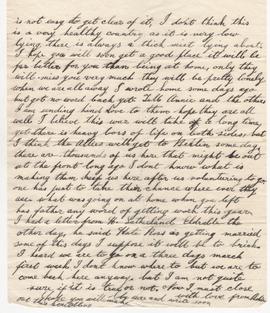 is not easy to get clear of it, I dont think this
is a very healthy country as it is very low
lying there is always a thick mist lying about.
I hope you will soon get a good place it will be
far better for you than being at home, only they
will miss you very much they will be pretty lonely
when we are all away I wrote home some days ago
but got no word back yet. tell Annie and the others
I am sending best love to them hope they are all
well I believe this war will take of a long time
yet there is heavy loss of life on both sides. but
I think the Allies will get to Berlin some day
there are thousands of us here that might be out
at the front long ago I dont know what is
making them keep us here after us volunteering to go
one has just to take their chance where ever they
use what was going on at home when you left
has father any word of getting work this year.
I had a letter from the other
day, he said Kate Ross is getting married
some of this days I suppose it will be to
I heard we are to go on a three days march
first week I dont know where to but we are to
come back here anyway, but I am not quite
sure if it is true or not, Now I must close
hope you will and write soon
with love from